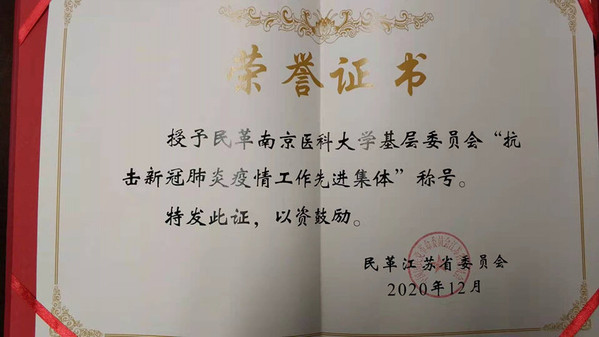 荣誉证书
授予民革南京医科大学基层委员会“抗
击新冠肺炎疫情工作先进集体”称号。
特发此证，以资鼓励。
民革江苏省委员会
2020年12月